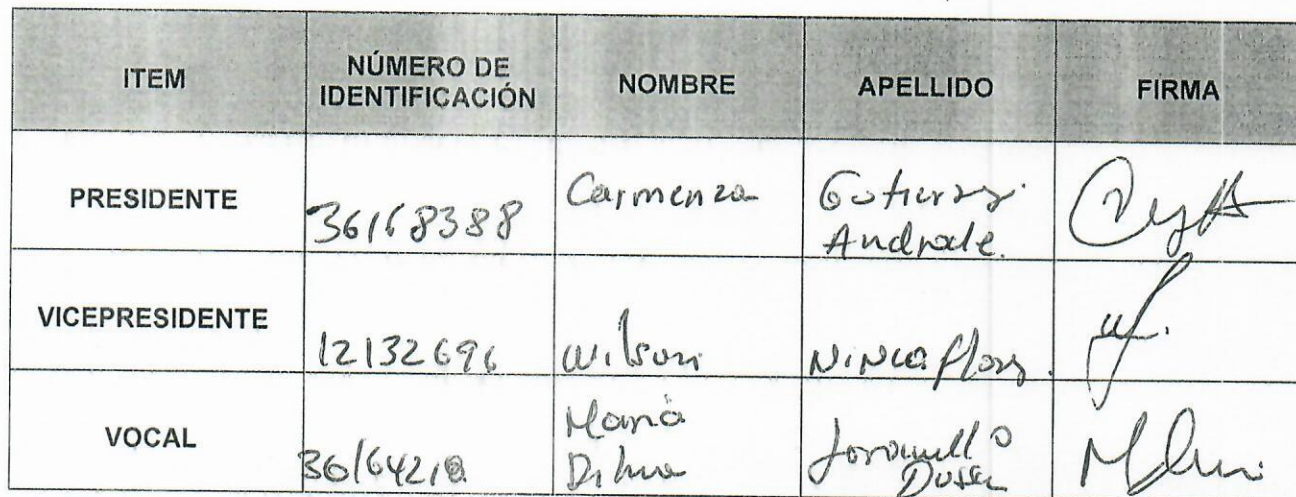 ITEM
NÚMERO DE
IDENTIFICACIÓN
NOMBRE
APELLIDO
FIRMA
PRESIDENTE
36168388
Carmenza
Gutierrez
Andrade.
VICEPRESIDENTE
12132696
Wilson
Ninco flores
VOCAL
Maria
Jaramillo
Dussan